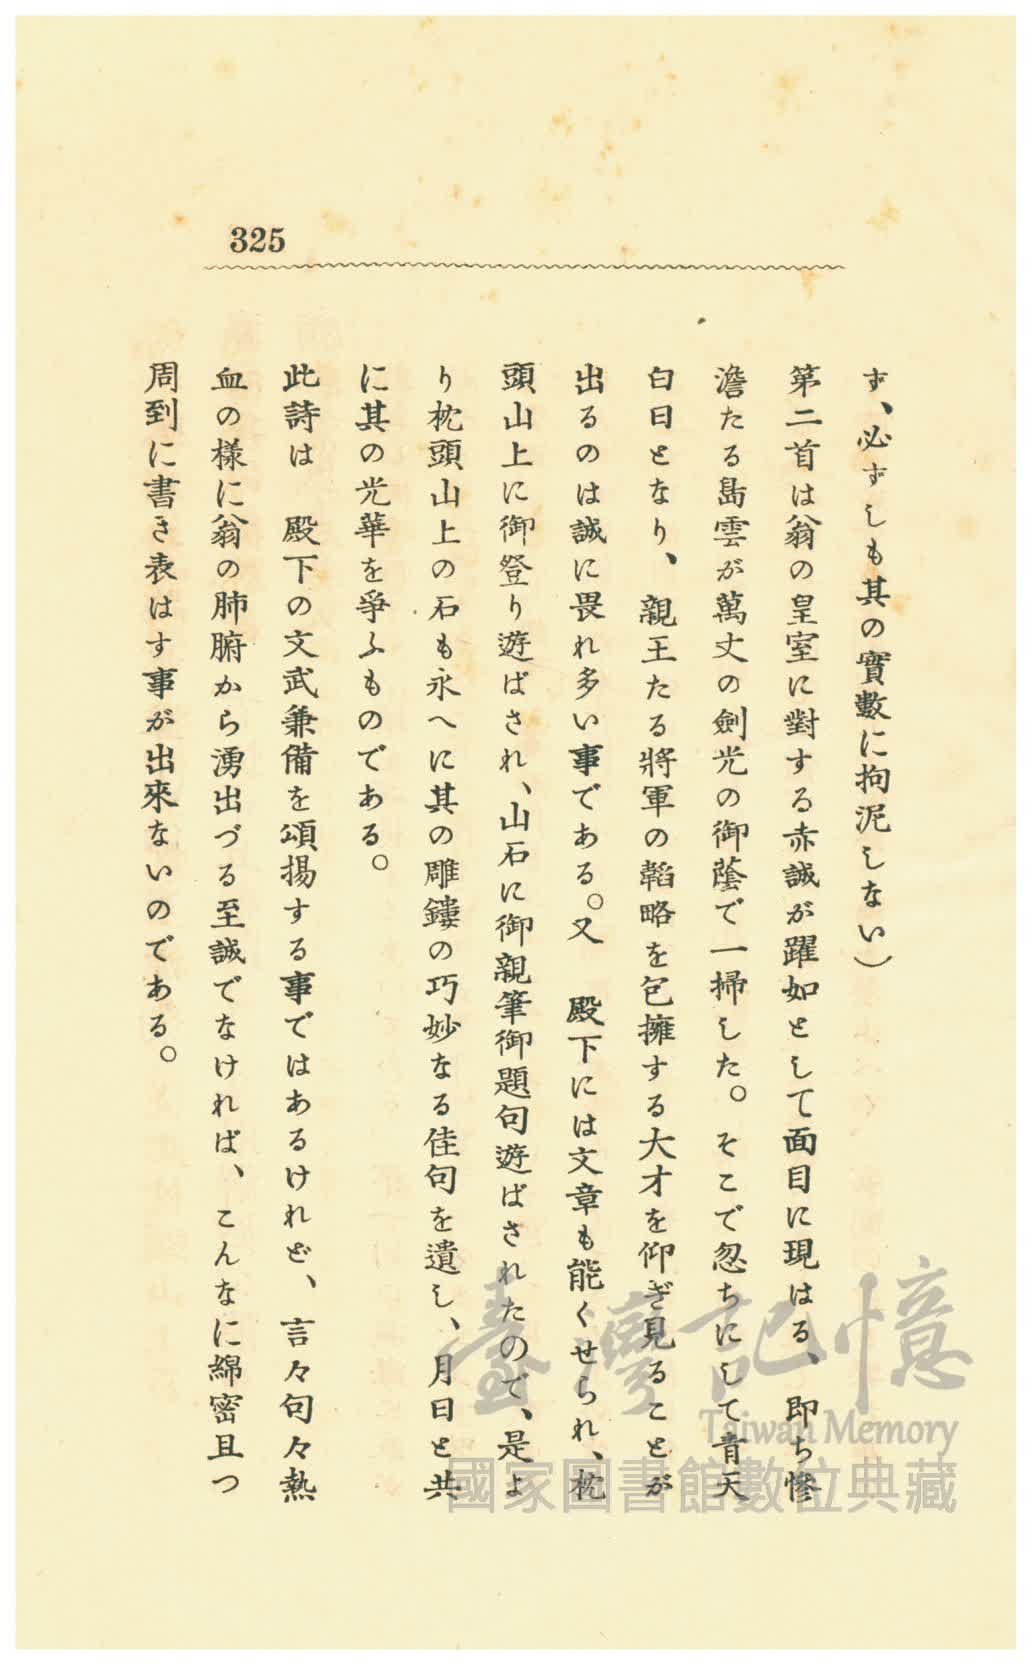 325
ず、必ずしも其の實數に拘泥しない）
第二首は翁の皇室に對する赤誠が躍如として面目に現はる、即ち慘
澹たる島雲が萬丈の劍光の御蔭で一掃した。そこで忽ちにして青天
白日となり、親王たる將軍の韜略を包擁する大才を仰ぎ見ることが
出るのは誠に畏れ多い事である。又　殿下には文章も能くせられ、枕
頭山上に御登り遊ばされ、山石に御親筆御題句遊ばされたので、是よ
り枕頭山上の石も永へに其の雕鏤の巧妙なる佳句を遺し、月日と共
に其の光華を爭ふものである。
此詩は　殿下の文武兼備を頌揚する事ではあるけれど、言々句々熱
血の樣に翁の肺腑から湧出づる至誠でなければ、こんなに綿密且つ
周到に書き表はす事が出來ないのである。
臺灣記憶
Taiwan Memory
國家圖書館數位典藏